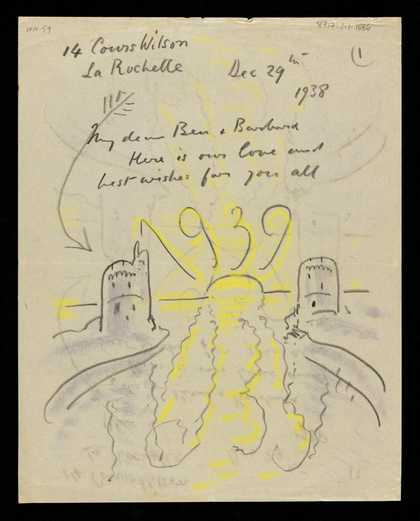 14 Cours Wilson
La Rochelle
Dec 29th
1938
(1)
My dear Ben & Barbara
Here is our love and
best wishes for you all
1939